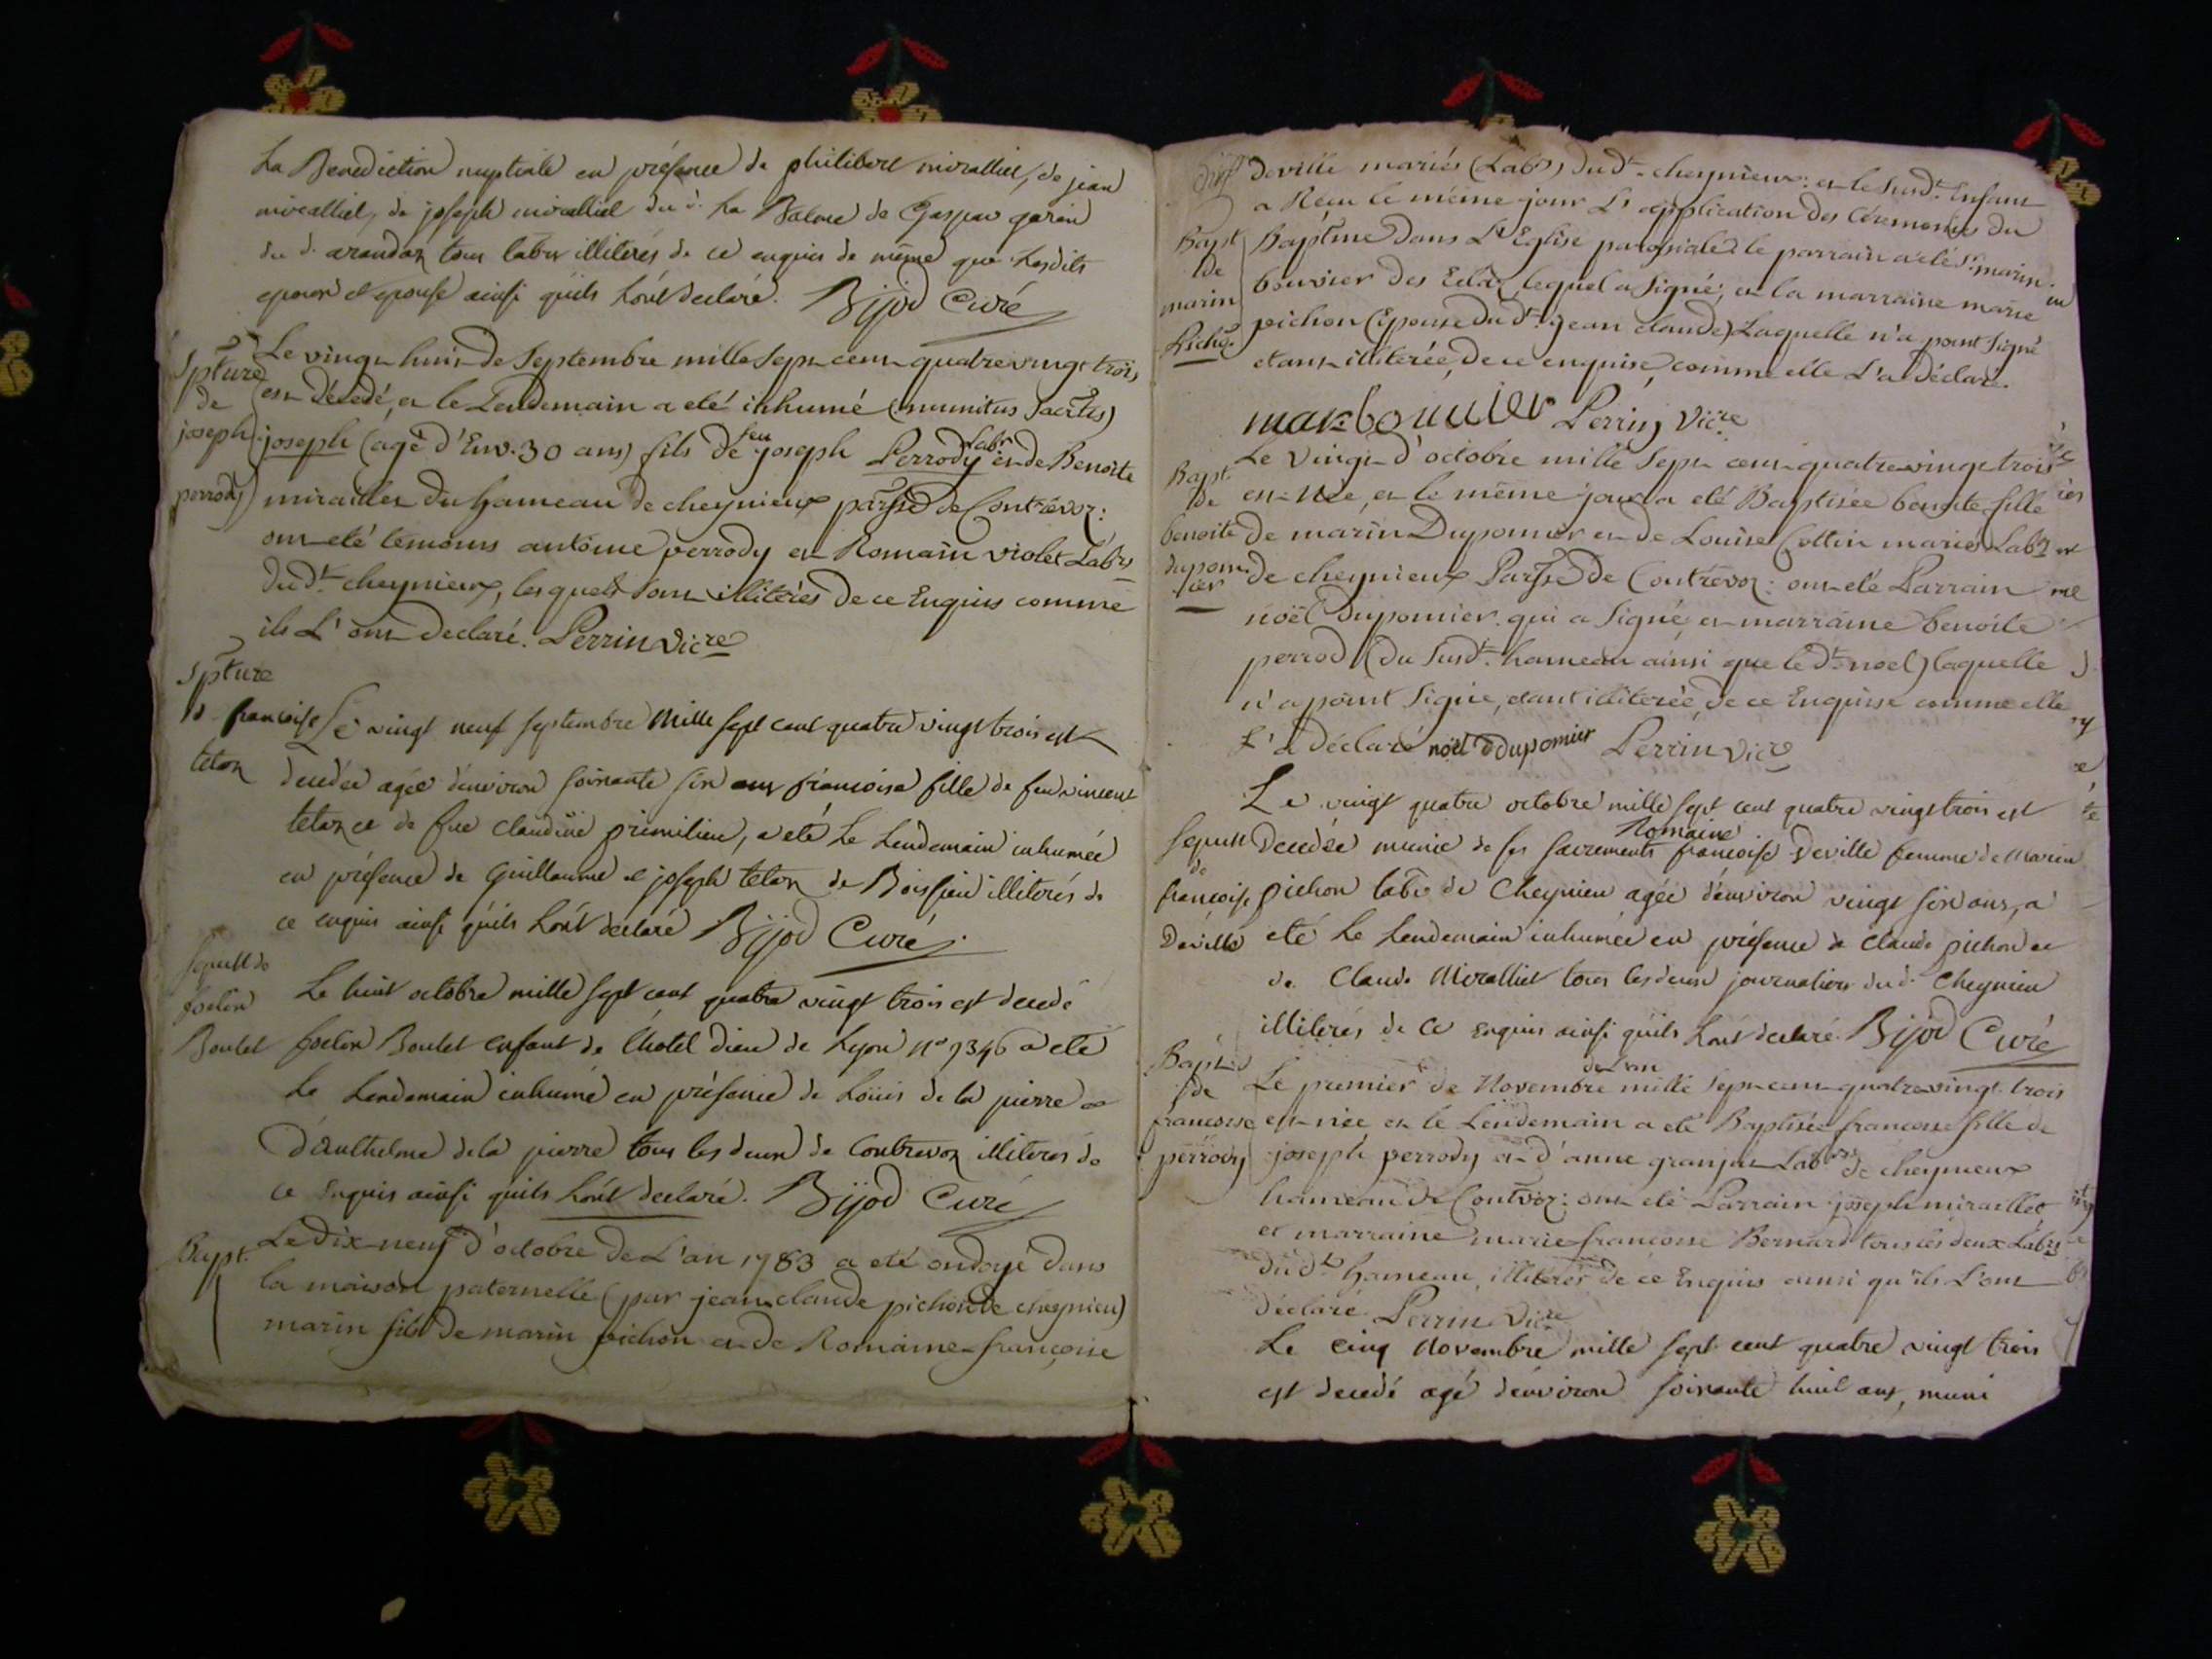 La Benediction nuptiale en présence de philibert miralliet, de jean
miralliet, de joseph miralliet du d. La Balme de Gaspar garin
du d. arandaz tous labrs illiterés de ce enquis de même que Lesdits
epoux et epouse ainsi qu'ils L'ont declaré. Bijod Curé
Le vingt huit de Septembre mille Sept cent quatre vingt trois
Spture
de
joseph
perrody
est Décedé, et le Lendemain a eté inhumé (munitus Sacrtis)
joseph (agé d'Env. 30 ans) fils de feu joseph Perrody Labr et de Benoite
miraillet du hameau de cheynieux parsse de Contrevoz:
ont eté témoins antoine perrody et Romain violet Labrs
dudt. cheynieux, lesquels sont illitérés de ce Enquis comme
ils L'ont declaré. Perrin Vicre
Spture
d. francoise
tetaz
Le vingt neuf septembre mille sept cent quatre vingt trois est
decedée agée d'environ soixante six ans françoise fille de feu vincent
tetaz et de fue claudine primilieu, a eté Le Lendemain inhumée
en présence de Guillaume et joseph tetaz de Boissieu illiterés de
ce enquis ainsi qu'ils L'ont declaré Bijod Curé
Sepult de
Boulet
Le huit octobre mille sept cent quatre vingt trois est decedé
Boulet enfant de L'hotel Dieu de Lyon no 9346 a eté
Le Lendemain inhumé en présence de Loüis de la pierre et
d'Anthelme de la pierre tous les deux de Contrevoz illiteres de
ce Enquis ainsi quils L'ont declaré. Bijod Curé
Bapt.
Le dix-neuf d'octobre de L'an 1783 a eté ondoyé dans
la maison paternelle (par jean claude pichon de cheynieu)
marin fils de marin pichon et de Romaine-françoise
deville mariés (Labrs) dudt. cheynieux: et le Susdt. Enfant
a Recu le même jour L'application des Céremonies du
Bapt
de
marin
Pichon
Baptême dans L'Eglise paroissiale: le parrain a eté Sr. marin
bouvier des Eclaz, lequel a Signé; et la marraine marie
pichon (Epouse dudt. jean claude) Laquelle n'a point Signé
etant illiterée, de ce enquise, comme elle L'a déclaré.
mar bouuier Perrin Vicre
Bapt.
de
benoite
dupom
ier
Le Vingt d'octobre mille Sept cent quatre vingt trois
est née, et le même jour a eté Baptisée benoite fille
de marin Dupomier et de Louise Cottin mariés Labrs
de cheynieux Parsse de Contrevoz: ont eté Parrain
noël Dupomier qui a Signé, et marraine benoite
perrod (du Susdt. hameau ainsi que le dt. noel) laquelle
n'a point Signé, etant illiterée, de ce Enquise comme elle
L'a déclaré noël dupomier Perrin Vicre
Le vingt quatre octobre mille sept cent quatre vingt trois est
Sepult
de
françoise
Deville
Decedée munie de ses sacrements Romaine françoise Deville femme de Marin
pichon labr de Cheynieu agée d'environ vingt six ans, a
eté Le Lendemain inhumée en présence de Claude pichon et
de Claude Miralliet tous les deux journaliers du d. Cheynieu
illiterés de ce enquis ainsi qu'ils L'ont declaré. Bijod Curé
Bapt.
de
francoise
perrody
Le premier de Novembre de L'an mille Sept cent quatre vingt trois
est née et le Lendemain a eté Baptisée francoise fille de
joseph perrody et d'anne granjat Labrs de cheynieux
hameau de Contrevoz: ont eté Parrain joseph miraillet
et marraine marie francoise Bernard tous les deux Labrs
dudt. hameau, illiterés de ce Enquis ainsi qu'ils L'ont
déclaré. Perrin Vicre
Le cinq Novembre mille sept cent quatre vingt trois
est decedé agé d'environ soixante huit ans, muni